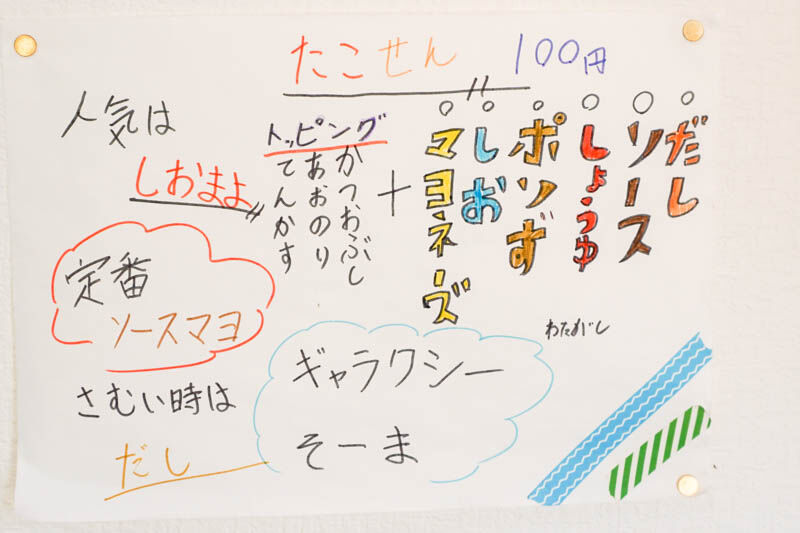 たこせん 100円
だし
ソース
しょうゆ
ポンず
しお
マヨネーズ
+
トッピング
かつおぶし
あおのり
てんかす
人気は
しおまよ
定番
ソースマヨ
さむい時は
だし
ギャラクシー
そーま
わたがし